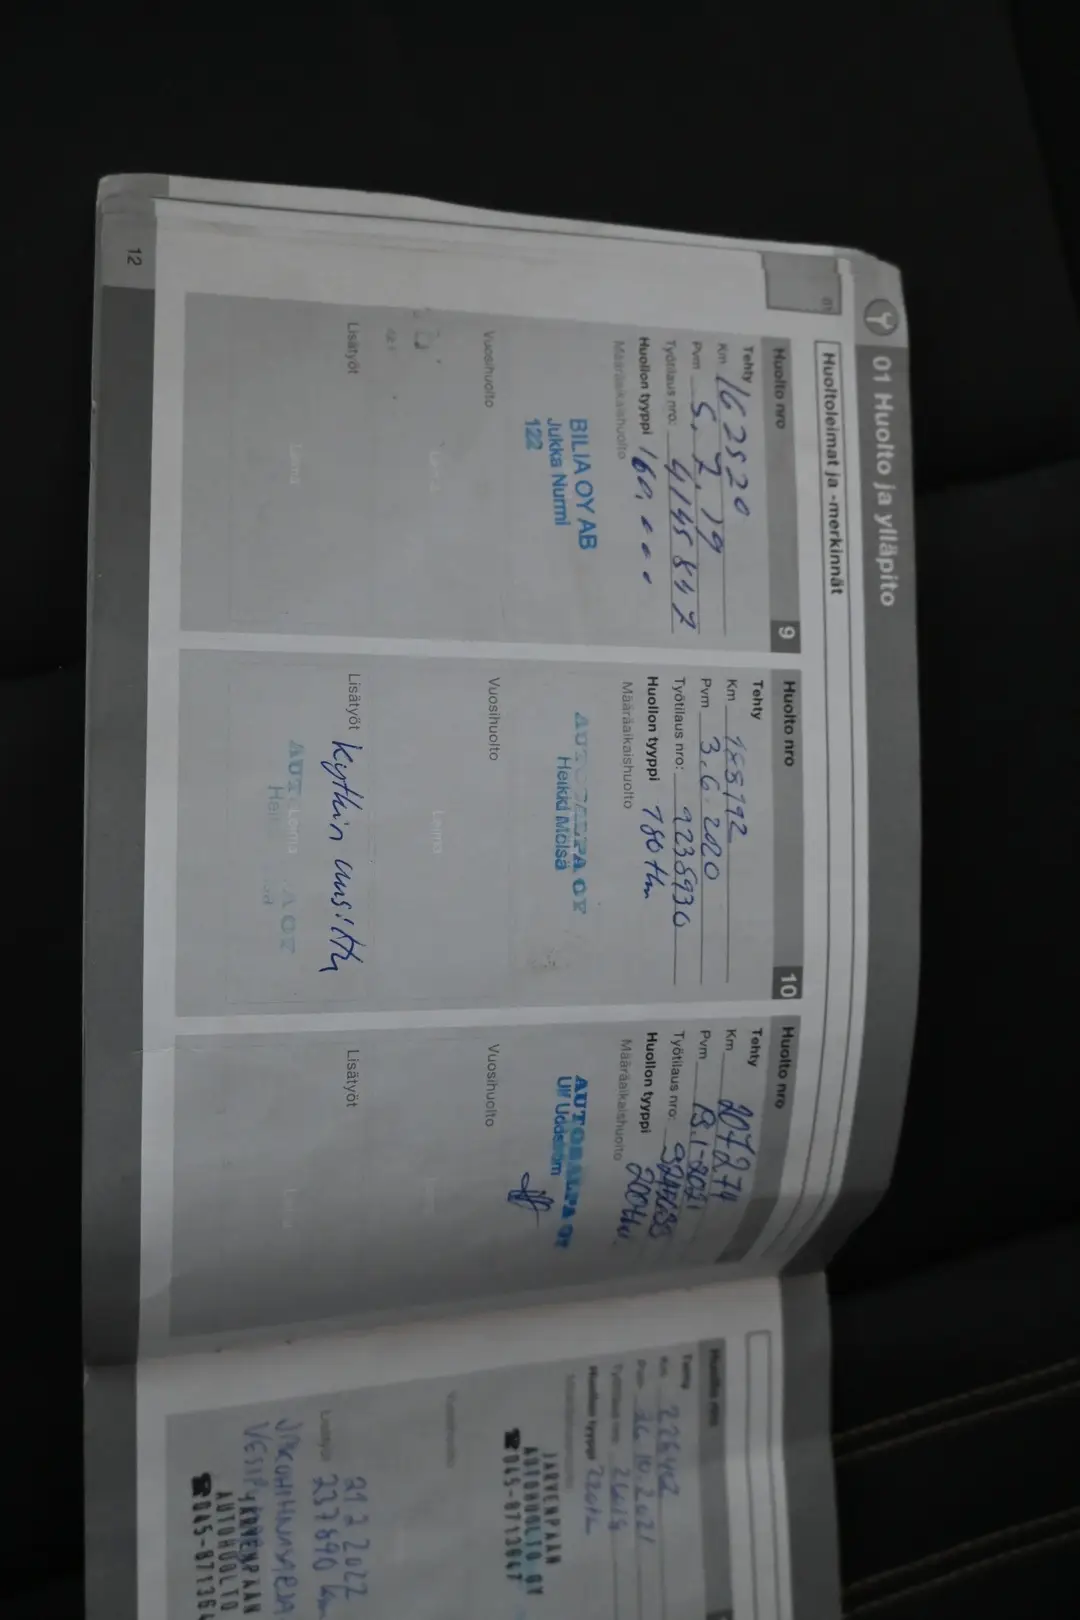 01 Huolto ja ylläpito
Huoltoleimat ja -merkinnät
Huolto nro 9
Tehty
Km 162520
Pvm 5.7.19
Työtilaus nro: 4145847
Huollon tyyppi 160.000
Määräaikaishuolto
BILIA OY AB
Jukka Nurmi
122
Vuosihuolto
Leima
Lisätyöt
Leima
Huolto nro 10
Tehty
Km 188192
Pvm 3.6.2020
Työtilaus nro: 9235930
Huollon tyyppi 180 tkm
Määräaikaishuolto
AUTOSALPA OY
Heikki Mölsä
Vuosihuolto
Leima
Lisätyöt
Leima
Huolto nro
Tehty
Km 207274
Pvm 13.1-2021
Työtilaus nro:
Huollon tyyppi 200tkm
Määräaikaishuolto
AUTOSALPA OY
Ulf Uddström
Vuosihuolto
Lisätyöt
12
Huolto nro
Tehty
Km 226462
Pvm 26.10.2021
Työtilaus nro:
Huollon tyyppi
JÄRVENPÄÄN
AUTOHUOLTO OY
☎045-8713647
Vuosihuolto
21 7 2022
Lisätyöt 237890 km
JAKOHIHNASARJA
JÄRVENPÄÄN
AUTOHUOLTO
☎045-87136